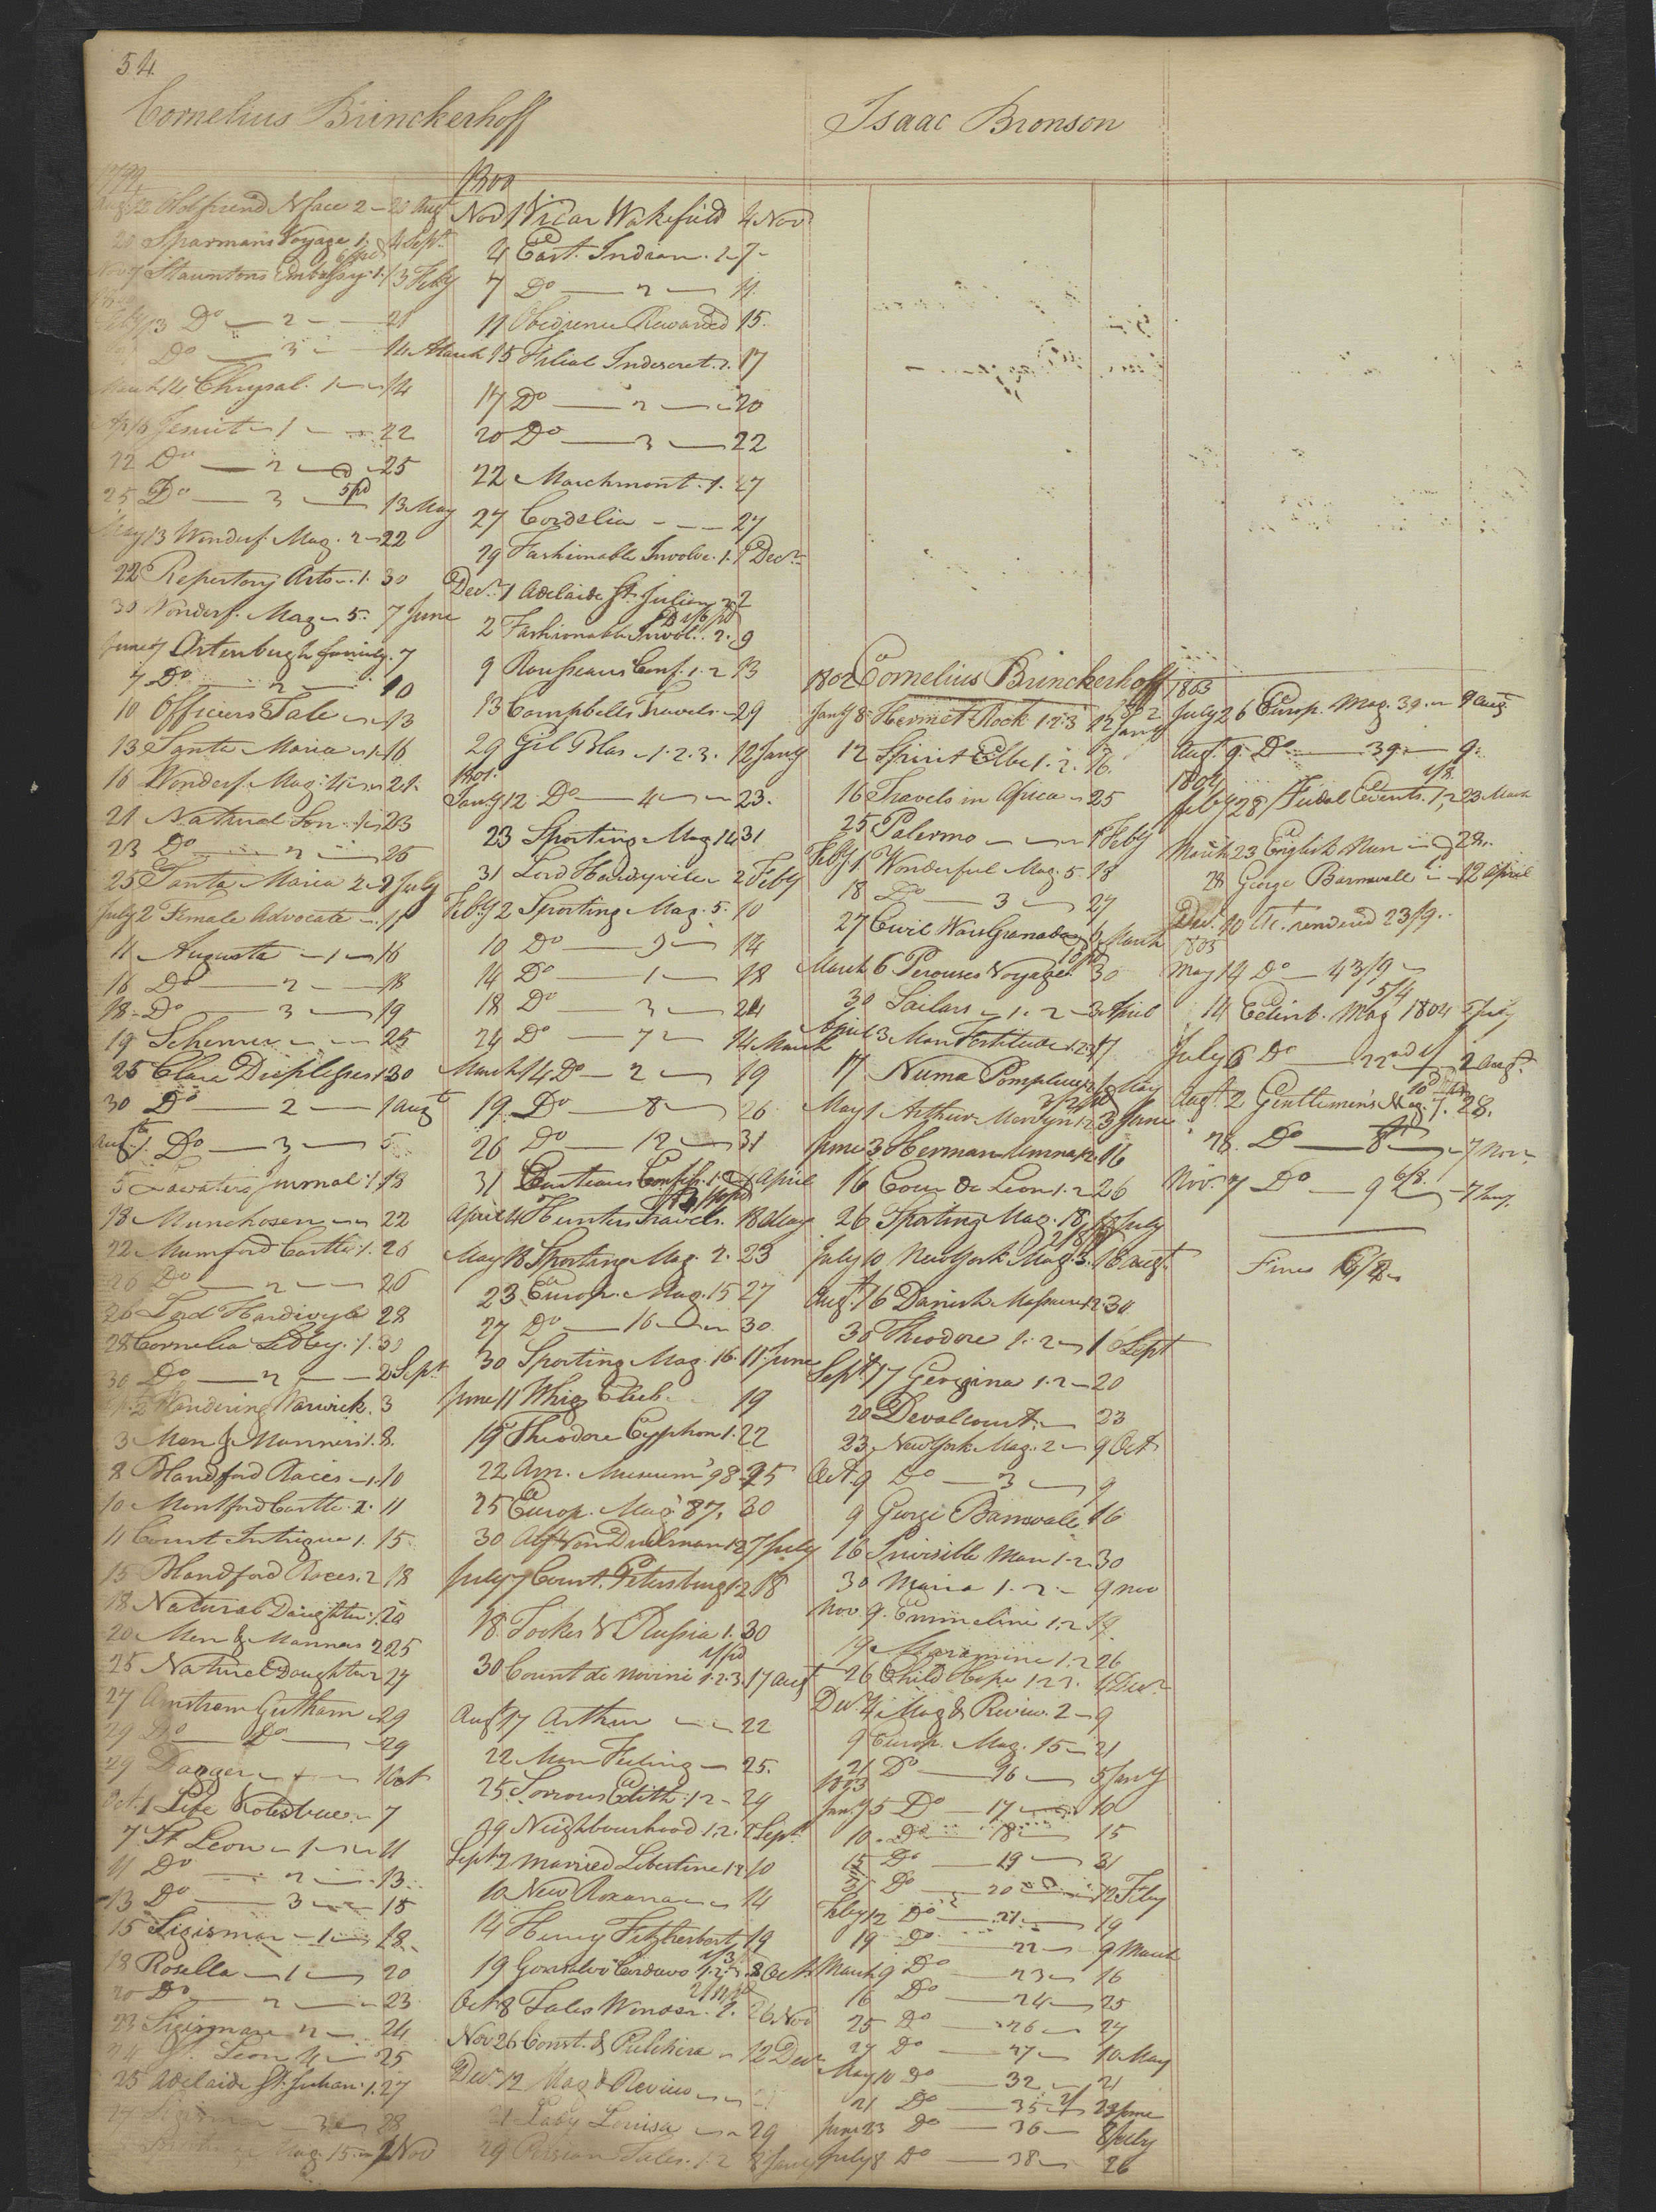 54.
Cornelius Brinckerhoff
1799
Aug 12 Wolfriend N face 2 - 20 Augt
20 Sparman's Voyage 1. 4 Sept.
Nov 7 Stauntons Embassy. 1. 13 Feby
Feby 13 Do — 2 — 21
21 Do — 3 — 14 March
March 14 Chrysal. 1 — 14
Ap 16 Jesuit - 1 — 22
22 Do — 2 — 25
25 Do — 3 — 5/pd 13 May
May 13 Wonderf. Mag. 2 - 22
22 Repertory Arts - 1. 30
30 Wonderf. Mag - 5. 7 June
June 7 Ortenburgh family. 7
7 Do — 2 — 10
10 Officers Tale — 13
13 Santa Maria - 1. 16
16 Wonderf. Mag. 4 — 21.
21 Natural Son. 1 - 23
23 Do — 2 — 25
25 Santa Maria 2 - 2 July
July 2 Female Advocate - 11
11 Augusta - 1 - 16
16 Do — 2 — 18
18 - Do — 3 — 19
19 Schemer — 25
25 Clara Duplessis 1 30
30 Do — 2 — 1 Augt
Augt 1. Do — 3 — 5
5 Lavaters Journal. 1. 18
18 Munchosen — 22
22 Mumford Castle. 1. 26
26 Do — 2 — 26
26 Lord Hardivyle 28
28 Cornelia Sedley. 1. 30
30 Do — 2 — 2 Sept.
Sep. 2 Wandering Warwick. 3
3 Men & Manners 1. 8.
8 Blandford Races - 1. 10
10 Montford Castle. 2. 11
11 Court Intrigue 1. 15
15 Blandford Races. 2 18
18 Natural Daughter. 1. 20
20 Men & Manners 2 25
25 Natural Daughter 2 27
27 Amstrem Gutham - 29
29 Do — Do — 29
29 Dagger — 1 Oct
Oct. 1 Life Kotzebue - 7
7 St Leon - 1 — 11
11 Do — 2 — 13
13 Do — 3 — 15
15 Sigismar - 1 — 18
18 Rosella — 1 — 20
20 Do — 2 — 23
23 Sigismar 2 — 24
24 St. Leon 4 — 25
25 Adelaide St. Julian. 1. 27
27 Sigismar — 3 — 28
Mag. 15 - 1 Nov
1800
Nov 1 Vicar Wakefield 4 Nov
4 East Indian. 1 - 7 -
7 Do — 2 — 11.
11 Obedience Rewarded 15.
15 Filial Indiscret. 1. 17
17 Do — 2 — 20
20 Do — 3 — 22
22 Marchmont. 1. 27
27 Cordelia — 27
29 Fashionable Involve. 1. 1 Decr
Decr. 1 Adelaide St. Julian 2 2
2 Fashionable Invol. 2. 9
9 Rousseaus Conf. 1. 2 13
13 Campbells Travels - 29
29 Gil Blas - 1. 2. 3. 12 Jany
1801.
Jany 12 Do — 4 — 23.
23 Sporting Mag 14 31
31 Lord Hardivyle - 2 Feby
Feby 2 Sporting Mag. 5. 10
10 Do — 9 — 14
14 Do — 1 — 18
18 Do — 3 — 24
24 Do — 7 — 14 March
March 14 Do — 2 — 19
19 Do — 8 — 26
26 Do — 12 — 31
31 Confess. 1. 2 4 April
April 4 Hunters Travels. 18 May
May 18 Sporting Mag. 2. 23
23 Europ. Mag. 15 27
27 Do — 16 — 30
30 Sporting Mag. 16. 11 June
June 11 Whig Club. 19
19 Theodore Cyphon 1. 22
22 Am. Museum '98 - 25
25 Europ. Mag 87. 30
30 Alf Von Duelman 1 2 7 July
July 7 Court. Petersburg 1. 2 18
18. Tookes Russia 1. 30
30 Count de Novini 1. 2. 3. 17 Augt
Augt 17 Arthur — 22
22 Man Feeling — 25.
25. Sorrows Edith. 1 2 - 29
29 Neighbourhood 1. 2. 2 Sept.
Sept 2 Married Libertine 1 2 10
10 New Roxana — 14
14 Henry Fitzherbert 19
19 Gonsalvo Cordova 1. 2. 3. 8 Oct
Oct 8 Tales Wonder. 1. 26 Nov
Nov 26 Const. & Pulchera - 12 Decr
Decr 12 Mag & Review — 21
21 Lady Louisa — 29
29 Persian Tales. 1. 2 8 Jany
Isaac Bronson
1802 Cornelius Brinckerhoff
Jany 8 Hermit Rock 1. 2. 3 12 Jany
12 Spirit Elbe 1. 2. 16.
16 Travels in Africa - 25
25 Palermo — 1 Feby
Feby 1 Wonderful Mag. 5. 18
18 Do — 3 — 27
27 Civil Wars Granada 6 March
March 6 Perouses Voyage 30
30 Sailors - 1. 2 - 3 April
April 3 Man Fortitude 1. 2. 3 17
17 Numa Pompilius 1 May
May 1 Arthur Mervyn 1. 2 3 June
June 3 Herman Unna 1. 2. 16
16 Coeur De Leon 1. 2 26
26 Sporting Mag. 18. 10 July
July 10 New York Mag. 3. 16 Augt.
Augt. 16 Danish Massacre 1 2 30
30 Theodore 1. 2 — 1 Sept
Sept 17 Georgina 1. 2 - 20
20 Devalcourt — 23
23 New York Mag. 2 - 9 Oct
Oct. 9 Do — 3 — 9
9 George Barnwell 16
16 Invisible Man 1. 2. 30
30 Maria 1. 2 - 9 Nov
Nov 9. Emmeline 1. 2 19.
19 1. 2 26
26 Child Hope 1 2 3. 4 Decr
Decr 4 Mag & Review. 2 - 9
9 Europ. Mag. 15 - 21
21 Do — 16 — 5 Jany
1803
Jany 5 Do — 17 — 10
10 - Do — 18 — 15
15 Do — 19 — 31
31 Do — 20 — 12 Feby
Feby 12 Do — 21 — 19
19 Do — 22 — 9 March
March 9 Do — 23 — 16
16 Do — 24 — 25
25 Do — 26 — 27
27 Do — 27 — 10 May
May 10 Do — 32 — 21
21 Do — 35 — 23 June
June 23 Do — 36 — 8 July
July 8 Do — 38 — 26
1803
July 26 Europ. Mag. 39. - 9 Augt
Augt. 9. Do — 39 — 9.
1804
Feby 28 Feudal Events. 1, 2 23 March
March 23 English Man — 28.
28 George Barnwell — 12 April
Decr. 10 Ac. rendered 23/9.
1805
May 14 Do — 43/9 -
14 Edinb. Mag 1804 5/4 July
July 6 Do — 22 2 Augt.
Augt. 2 Gentlemen's Mag. 7. 28.
28. Do — 8 — 7 Nov.
Nov. 7 Do — 9 6/8 — 7 Jany.
Fines